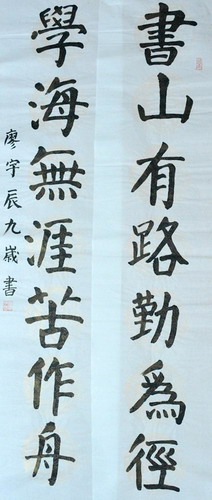 書山有路勤為徑
學海無涯苦作舟
廖宇辰九歲書